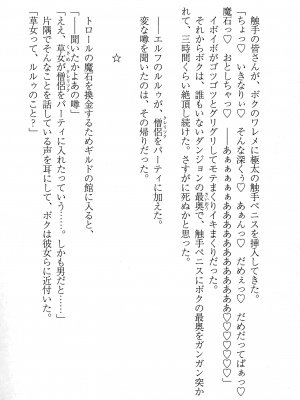 触手の皆さんが、ボクのワレメに極太の触手ペニスを挿入してきた。
「ちょっ♡　いきなりぃっ♡　そんな深くぅっ♡　あぁんっ♡　だめぇっ♡　だめだってばぁっ♡
魔石っ♡　おとしちゃっ♡　――あぁぁぁぁぁあああああああああああ♡♡♡♡♡」
イボイボがゴツゴツとグリグリしてモテまくりイキまくりだった。
それからボクは、誰もいないダンジョンの最奥で、触手ペニスにボクの最奥をガンガン突か
れて、三時間くらい絶頂し続けた。さすがに死ぬかと思った。
――エルフのルルゥが、僧侶をパーティに加えた。
変な噂を聞いたのは、その帰りだった。
☆
トロールの魔石を換金するためギルドの館に入ると、
「――聞いたかよあの噂」
「ええ、草女が僧侶をパーティに入れたっていう……。しかも男だと……」
片隅でそんなことを話している声を耳にして、ボクは彼女らに近付いた。
「草女って、ルルゥのこと？」